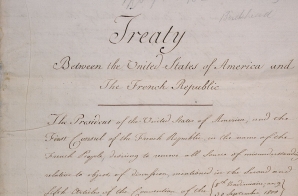 Treaty
Between the United States of America and
The French Republic
The President of the United States of America, and the
First Consul of the French Republic, in the name of the
French People, desiring to remove all Source of misunderstanding
relative to objects of discussion, mentioned in the Second and
fifth articles of the Convention of the